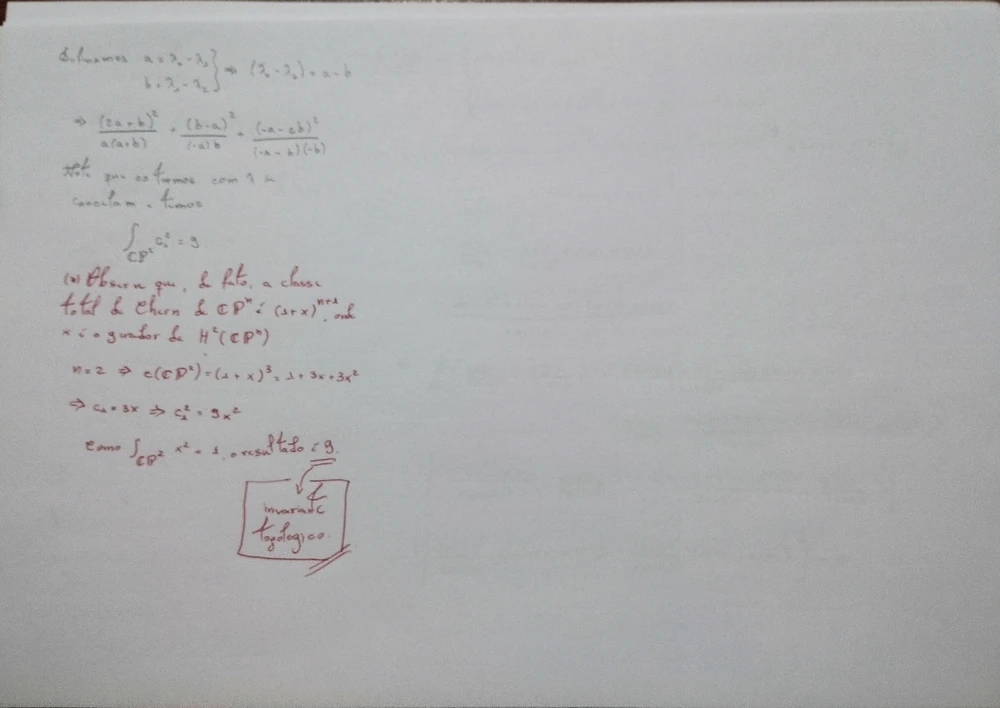 Definamos a = λ₀ - λ₁
b = λ₁ - λ₂ } ⇒ (λ₀ - λ₂) = a + b
⇒ (2a+b)²/a(a+b) + (b-a)²/(-a)b + (-a-2b)²/(-a-b)(-b)
Note que os termos com λ se
cancelam e temos
∫_CP² c₁² = 9.
(*) Observe que, de fato, a classe
total de Chern de CPⁿ é (1+x)ⁿ⁺¹, onde
x é o gerador de H²(CPⁿ)
n=2 ⇒ c(CP²) = (1+x)³ = 1+3x+3x²
⇒ c₁ = 3x ⇒ c₁² = 9x²
Como ∫_CP² x² = 1, o resultado é 9.
invariante
topologico.